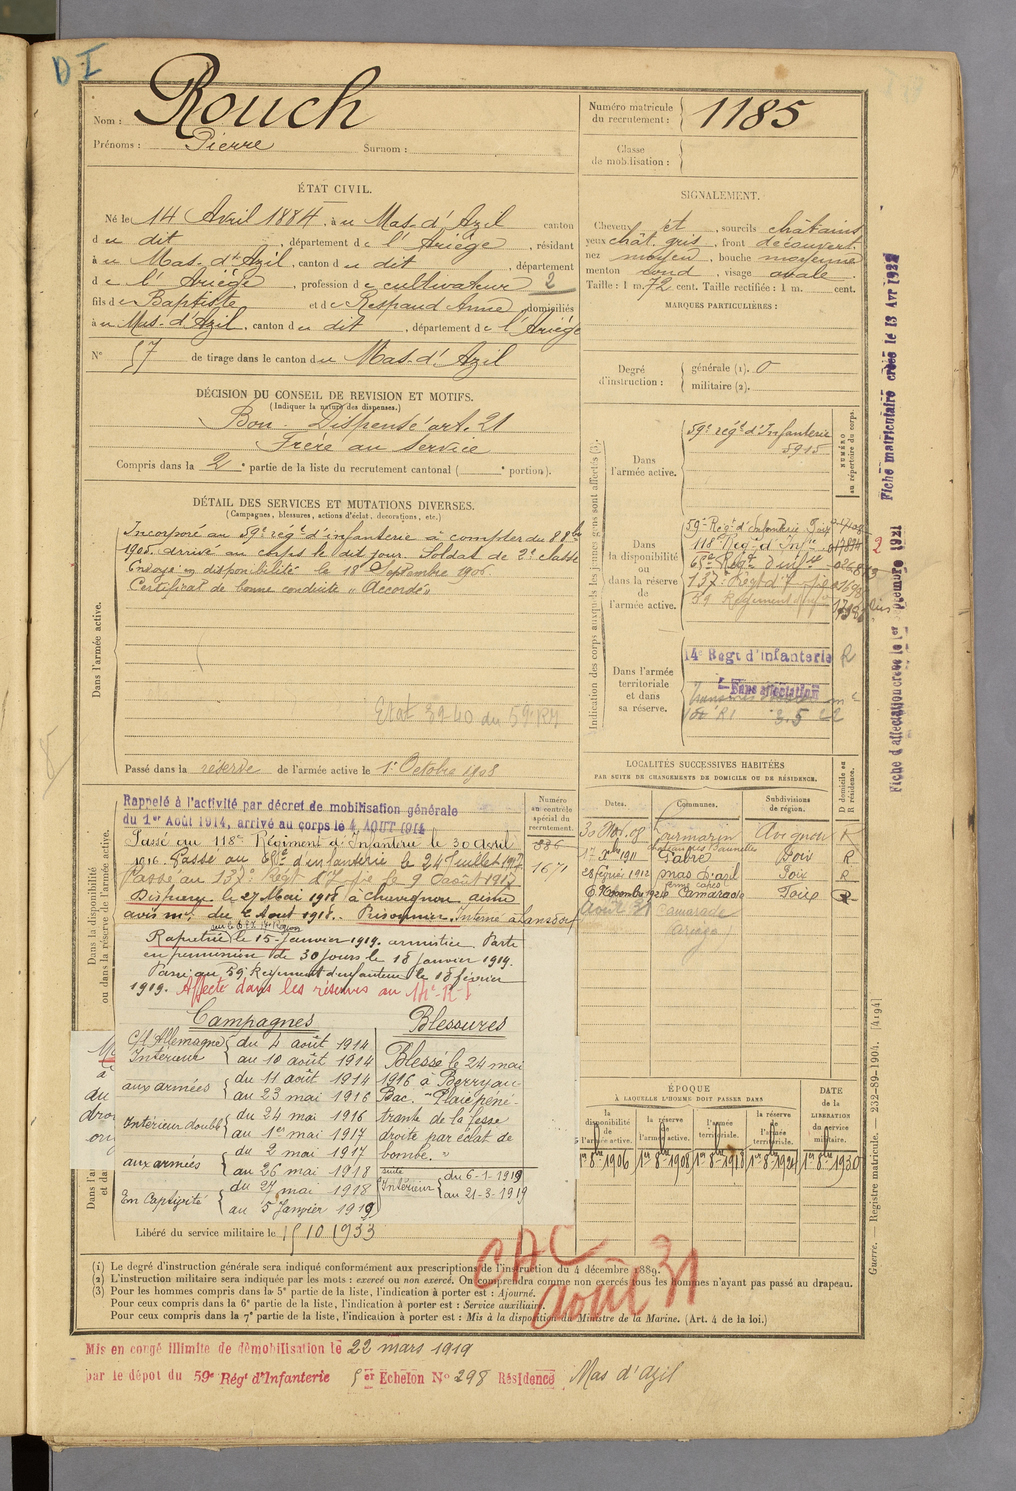 D I
Nom : Rouch
Prénoms : Pierre Surnom :
Numéro matricule du recrutement : 1185
Classe de mobilisation :
ÉTAT CIVIL.
Né le 14 Avril 1884, à u Mas-d'Azil canton
d u dit, département de l'Ariège, résidant
à u Mas-d'Azil, canton d u dit, département
de l'Ariège, profession de cultivateur 2
fils de Baptiste et de Respaud Anne, domiciliés
à u Mas-d'Azil, canton d u dit, département de l'Ariège
N° 57 de tirage dans le canton du Mas-d'Azil
SIGNALEMENT.
Cheveux et, sourcils châtains
yeux chât. gris, front découvert
nez moyen, bouche moyenne
menton rond, visage ovale
Taille : 1 m. 72 cent. Taille rectifiée : 1 m. cent.
MARQUES PARTICULIÈRES :
Degré d'instruction : générale (1). 0
militaire (2).
DÉCISION DU CONSEIL DE REVISION ET MOTIFS.
(Indiquer la nature des dispenses.)
Bon. Dispensé art. 21
Frère au service
Compris dans la 2e partie de la liste du recrutement cantonal ( e portion).
DÉTAIL DES SERVICES ET MUTATIONS DIVERSES.
(Campagnes, blessures, actions d'éclat, décorations, etc.)
Dans l'armée active.
Incorporé au 59e régt d'infanterie à compter du 8 8bre
1905. arrivé au corps le dit jour. Soldat de 2e classe
Envoyé en disponibilité le 18 Septembre 1906
Certificat de bonne conduite "Accordé"
Etat 3940 du 59e RI
Passé dans la réserve de l'armée active le 1er Octobre 1908
Indication des corps auxquels les jeunes gens sont affectés (3).
NUMÉRO au répertoire du corps.
Dans l'armée active.
59e régt d'Infanterie
5915
Dans la disponibilité ou dans la réserve de l'armée active.
59e Régt d'Infanterie Foix
118e Régt d'Infie
2
137e Régt d'Infie
59 Régiment d'infie
Dans l'armée territoriale et dans sa réserve.
14e Régt d'infanterie R
Sans affectation
Fiche matriculaire créée le 13 Avr 1932
Fiche d'affectation créée le 1er Septembre 1921
LOCALITÉS SUCCESSIVES HABITÉES
PAR SUITE DE CHANGEMENTS DE DOMICILE OU DE RÉSIDENCE.
Dates. Communes. Subdivisions de région. D domicile ou R résidence.
30 Nov. 08 Lourmarin Avignon R
1er Xbre 1911 Fabre Foix R
28 février 1912 Mas d'Azil Foix R
Camarade Foix R
Août 31 Camarade
Ariège
Dans la disponibilité ou dans la réserve de l'armée active.
Numéro au contrôle spécial du recrutement.
886
1671
Rappelé à l'activité par décret de mobilisation générale
du 1er Août 1914, arrivé au corps le 4 AOUT 1914
Passé au 118e Régiment d'Infanterie le 30 Avril
1916. Passé au d'infanterie le 24 Juillet 1917
Passé au 137e Régt d'Infie le 9 août 1917
Disparu le 27 Mai 1918 à Chavignon aisne
avis ml du 2 Aout 1918. Prisonnier Interné à Lansdorf
Rapatrié le 15 Janvier 1919. armistice Parti
en permission de 30 jours le 18 janvier 1919.
Passé au 59e Régiment d'infanterie le 18 février
1919. Affecté dans les réserves au 14e R.I
Campagnes
C/ Allemagne
Intérieur du 4 août 1914 au 10 août 1914
aux armées du 11 août 1914 au 23 mai 1916
Intérieur double du 24 mai 1916 au 1er mai 1917
aux armées du 2 mai 1917 au 26 mai 1918
En Captivité du 27 mai 1918 au 5 Janvier 1919
Blessures
Blessé le 24 mai
1916 à Berry au
Bac. - Plaie péné
trante de la fesse
droite par éclat de
bombe. "
suite
Intérieur du 6-1-1919 au 21-3-1919
Libéré du service militaire le 15 10 1933
ÉPOQUE
À LAQUELLE L'HOMME DOIT PASSER DANS
la disponibilité de l'armée active. la réserve de l'armée active. l'armée territoriale. la réserve de l'armée territoriale.
DATE de la LIBÉRATION du service militaire.
1er 8bre 1906 1er 8bre 1908 1er 8bre 1918 1er 8bre 1924 1er 8bre 1930
Guerre. — Registre matricule. — 232-89-1904. [4194]
(1) Le degré d'instruction générale sera indiqué conformément aux prescriptions de l'instruction du 4 décembre 1889.
(2) L'instruction militaire sera indiquée par les mots : exercé ou non exercé. On comprendra comme non exercés tous les hommes n'ayant pas passé au drapeau.
(3) Pour les hommes compris dans la 5e partie de la liste, l'indication à porter est : Ajourné.
Pour ceux compris dans la 6e partie de la liste, l'indication à porter est : Service auxiliaire.
Pour ceux compris dans la 7e partie de la liste, l'indication à porter est : Mis à la disposition du Ministre de la Marine. (Art. 4 de la loi.)
CAC
août 31
Mis en congé illimité de démobilisation le 22 mars 1919
par le dépot du 59e Régt d'Infanterie 5er Echelon N° 298 Résidence Mas d'Azil